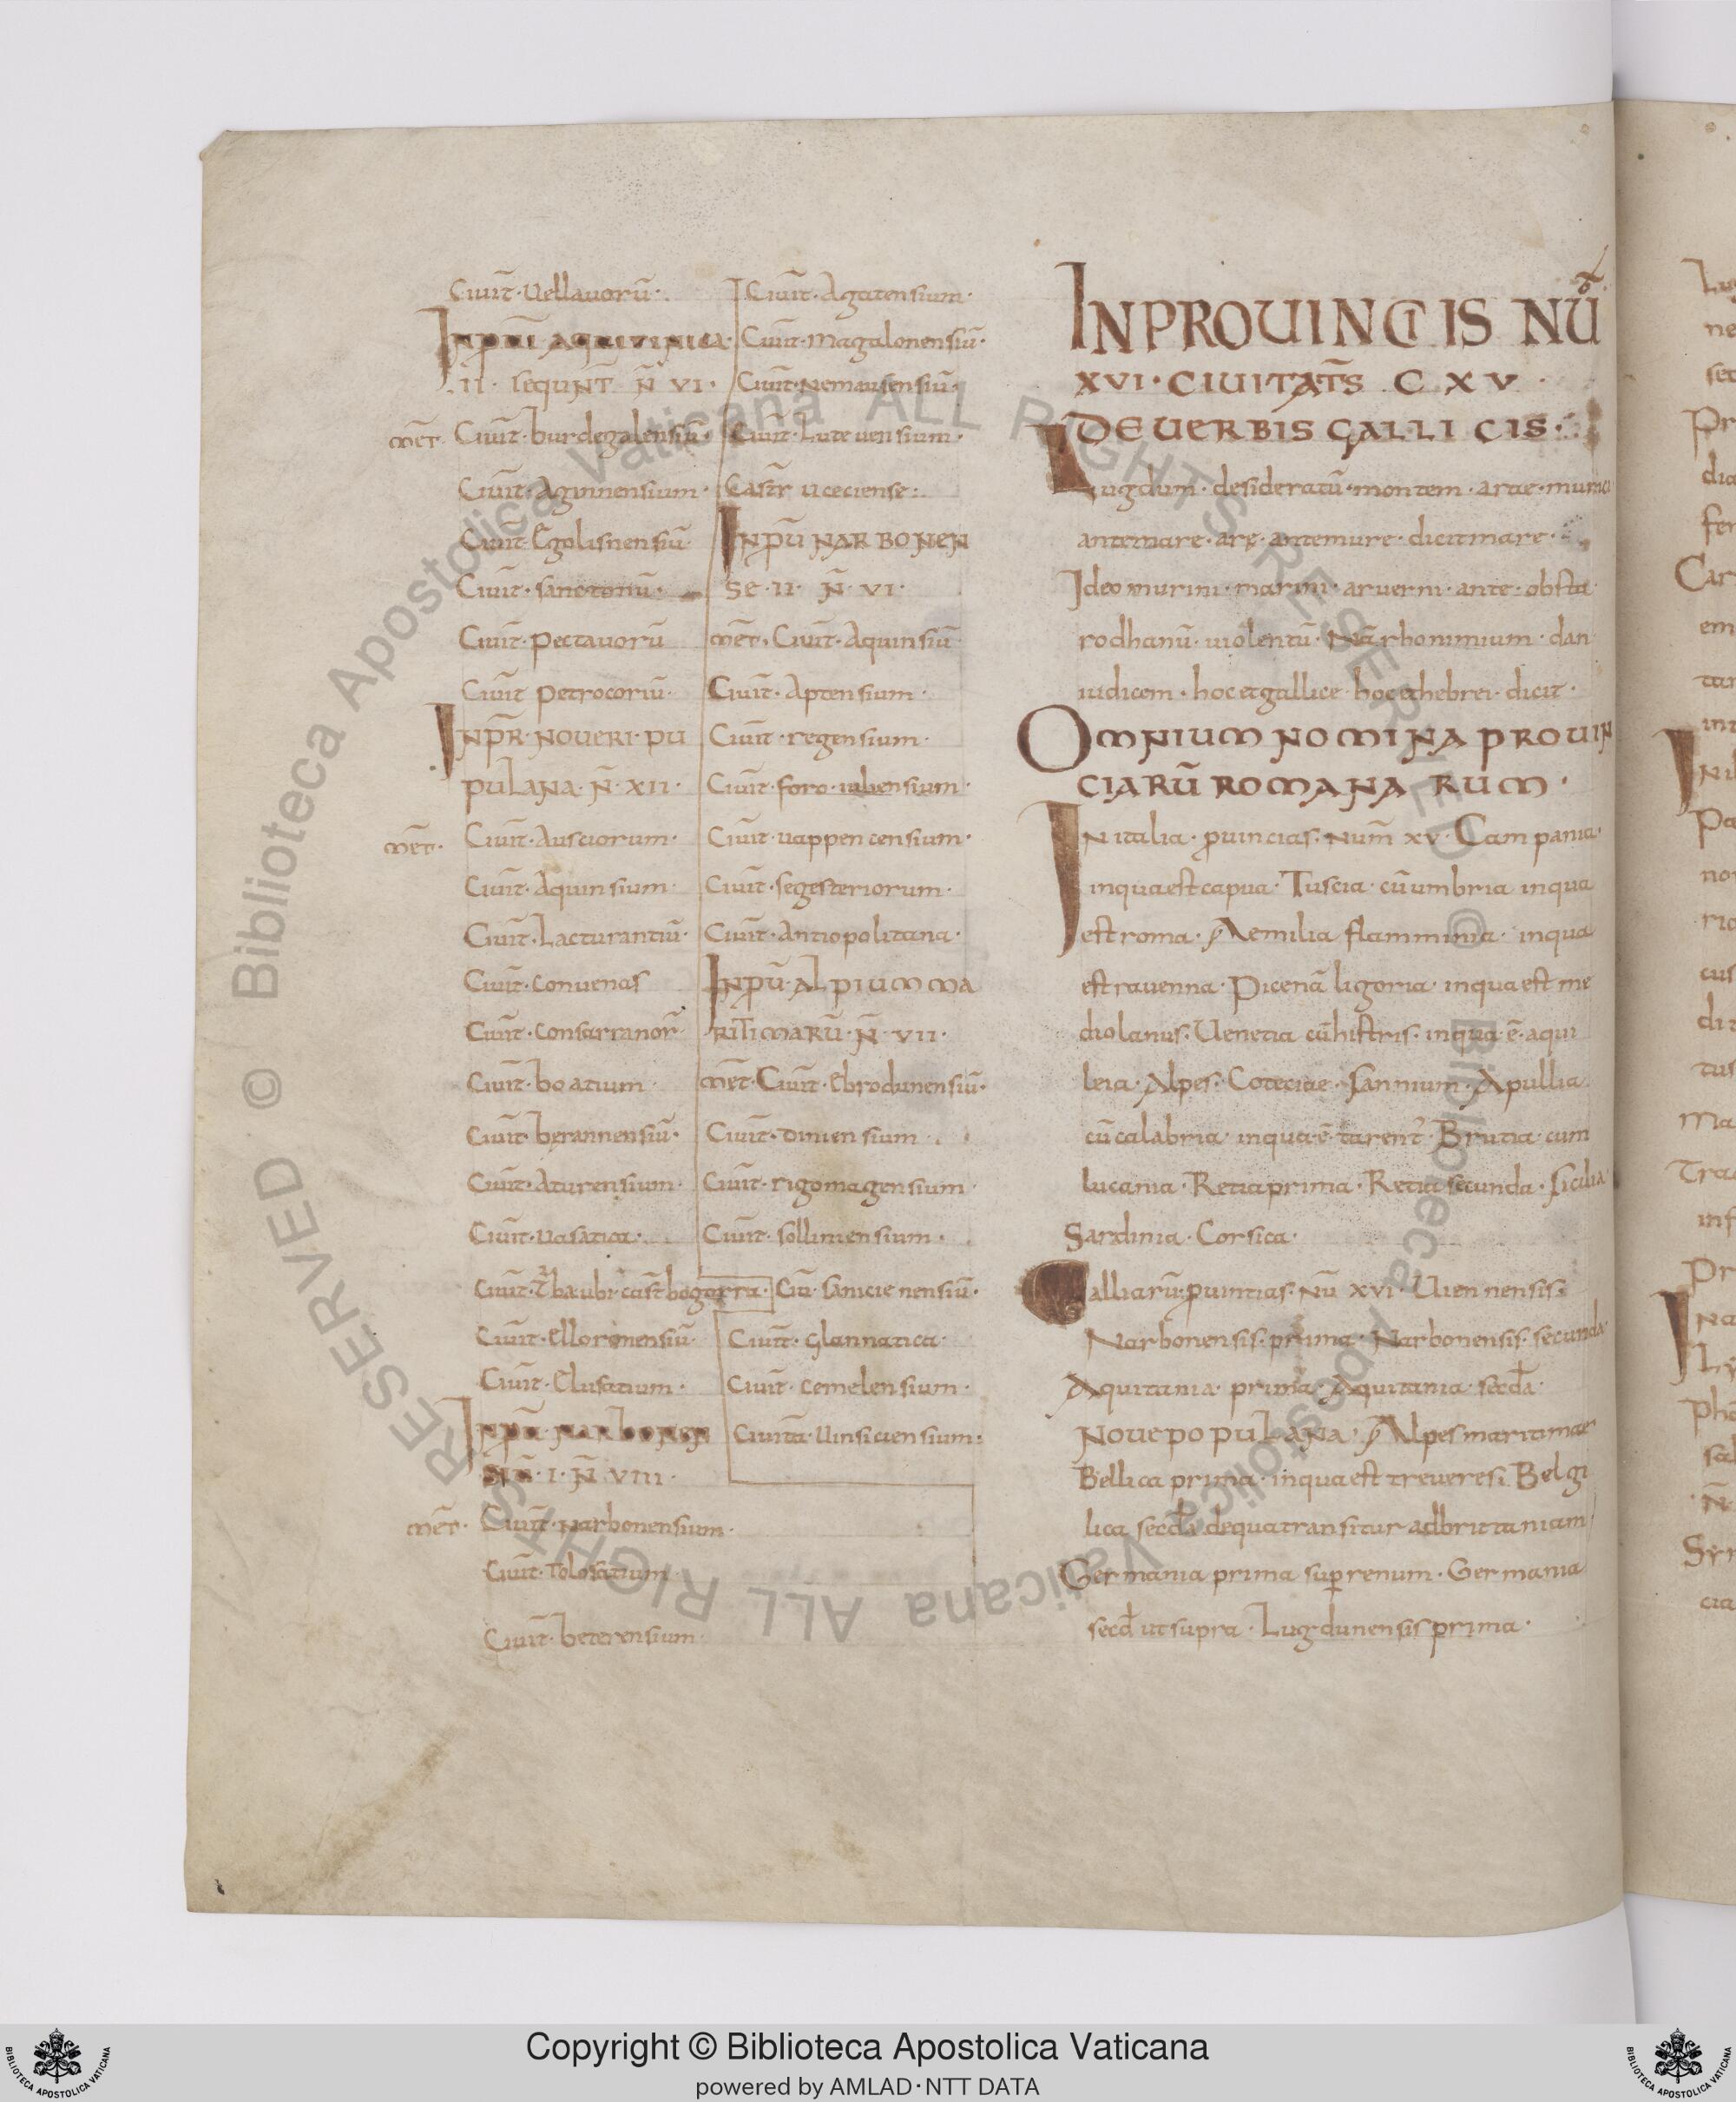 Ciuit̄·Uellauorū·
Inpūī aquitinica·
·ii· sequNT̄ N̄ VI·
met̄· Ciuit̄·burdegalensiū·
Ciuit̄·Aginnensium·
Ciuit̄·Egolisnensiū·
Ciuit̄·sanctonū·
Ciuit̄·pectauorū
Ciuit̄ petrocoriū·
INpR̄·NOUERI·PU
PULANA·N̄·XII·
met̄· Ciuit̄·Ausciorum·
Ciuit̄·Aquinsium·
Ciuit̄·Lacturantiū·
Ciuit̄·conuenas
Ciuit̄·consarranor̄·
Ciuit̄·boatium·
Ciuit̄·berannensiū·
Ciuit̄·Aturensium·
Ciuit̄·uasatica·
Ciuit̄·t̄ba·ubi·cast̄ bogorra·
Ciuit̄·elloronensiū·
Ciuit̄·Elusatium·
Inpū·narbonen
sis̄·I·N̄·VIII·
met̄· Ciuit̄·narbonensium·
Ciuit̄·Tolosatium·
Ciuit̄·beterensium·
Ciuit̄·Agatensium·
Ciuit̄·magalonensiū·
Ciuit̄·Nemausensiū·
Ciuit̄·Luteuensium·
Castr̄ uceciense·
INpū NARBONEN
SE·II· N̄·VI·
met̄·Ciuit̄·Aquinsiū·
Ciuit̄·Aptensium·
Ciuit̄·regensium·
Ciuit̄·foro·iuliensium·
Ciuit̄·uappencensium·
Ciuit̄·segesteriorum·
Ciuit̄·Antiopolitana·
INpū·ALPIUM MA
RITIMARŪ·N̄·VII·
met̄·Ciuit̄·Ebrodunensiū·
Ciuit̄·Diniensium·
Ciuit̄·rigomagensium·
Ciuit̄·solliniensium·
Ciū·sanicienensiū·
Ciuit̄·Glannatica·
Ciuit̄·cemelensium·
Ciuitā·Uinsiciensium·
INPROUINCIIS NŪ
XVI·CIUITAT̄S C X V·
DE UERBIS GALLICIS·
Lugdum·desideratū·montem·artae·murici
antemare·are·antemure·dicit mare·
Ideo murini·marini·aruerni·ante·obsta·
rodhanū·uiolentū·Nā·rho nimium·dan
iudicem·hoc et gallice·hoc et hebrei·dicit·
OMNIUM NOMINA PROUIN
CIARŪ ROMANARUM·
IN italia·puincias·Num̄ xv·Campania·
inqua est capua·Tuscia·cū umbria inqua
est roma·Aemilia flamminia·inqua
est rauenna·Picenā ligoria·inqua est me
diolanus·Uenetia cū histris·inqua·ē·aqui
leia·Alpes·Coteciae·Samnium·Apullia
cū calabria·inqua·ē·tarent̄·Brutia·cum
lucania·Retia prima·Retia secunda·sicilia·
Sardinia·Corsica·
Galliarū·puintias·Nū XVI·Uiennensis·
Narbonensis·prima·Narbonensis·secunda·
Aquitania·prima·Aquitania·secd̄a·
NOUE POPULANA·Alpes maritimae
Bellica prima·inqua est treueresi·Belgi
lica secd̄a dequa transitur adbrittaniam
Germania prima sup renum·Germania
secd̄ ut supra·Lugdunensis prima·
© Biblioteca Apostolica Vaticana ALL RIGHTS RESERVED © Biblioteca Apostolica Vaticana ALL RIGHTS RESERVED
Copyright © Biblioteca Apostolica Vaticana
powered by AMLAD·NTT DATA
BIBLIOTECA APOSTOLICA VATICANA
BIBLIOTECA APOSTOLICA VATICANA